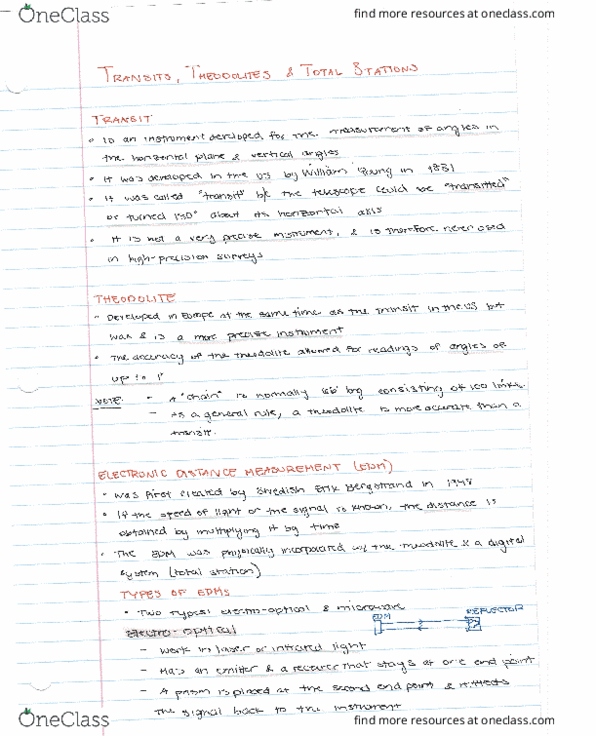 OneClass
find more resources at oneclass.com
TRANSITS, THEODOLITES & TOTAL STATIONS
TRANSIT
• Is an instrument developed for the measurement of angles in
the horizontal plane & vertical angles
• It was developed in the US by William Young in 1831
• It was called "transit" b/c the telescope could be "transitted"
or turned 180° about its horizontal axis
• It is not a very precise instrument, & is therefore never used
in high-precision surveys
THEODOLITE
- Developed in Europe at the same time as the transit in the US but
was & is a more precise instrument
• The accuracy of the theodolite allowed for readings of angles of
up to 1"
NOTE: - A "chain" is normally 66' long consisting of 100 links.
- As a general rule, a theodolite is more accurate than a
transit.
ELECTRONIC DISTANCE MEASUREMENT (EDM)
• was first created by Swedish Erik Bergstrand in 1948
• If the speed of light or the signal is known, the distance is
obtained by multiplying it by time
• The EDM was physically incorporated w/ the theodolite & a digital
system (total station)
TYPES OF EDMS
• Two types: electro-optical & microwave
EDM
REFLECTOR
electro-optical
- work in laser or infrared light
- Has an emitter & a receiver that stays at one end point
- A prism is placed at the second end point & reflects
the signal back to the instrument
OneClass
find more resources at oneclass.com